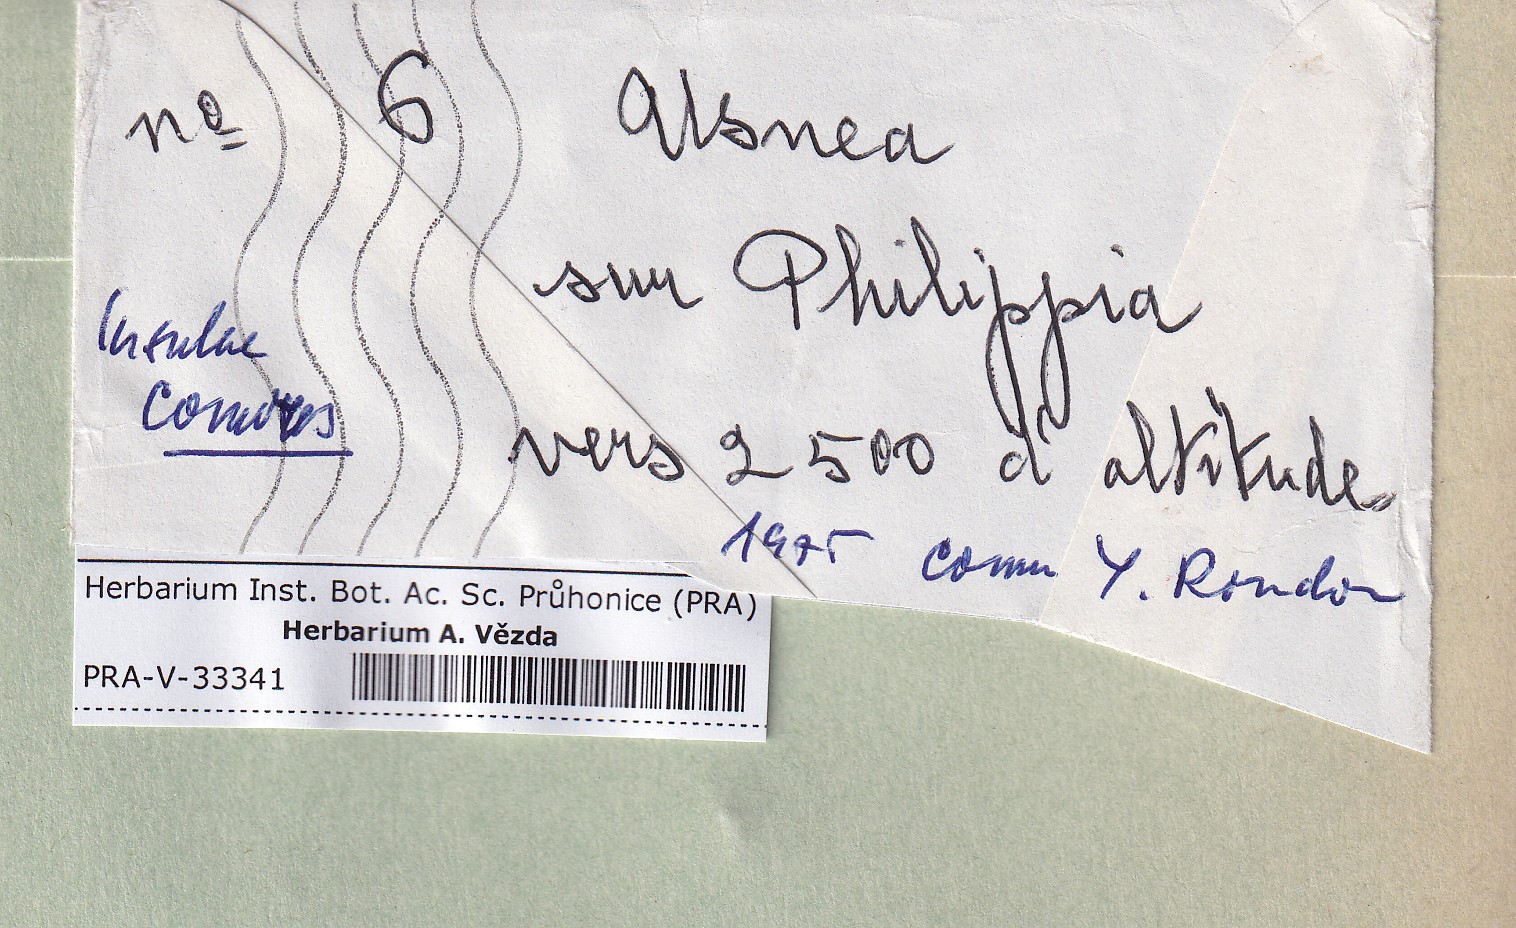 nº 6 Usnea
sur Philippia
Insulae
Comores
vers 2500 d'altitude
1975 comm Y. Rondon
Herbarium Inst. Bot. Ac. Sc. Průhonice (PRA)
Herbarium A. Vězda
PRA-V-33341